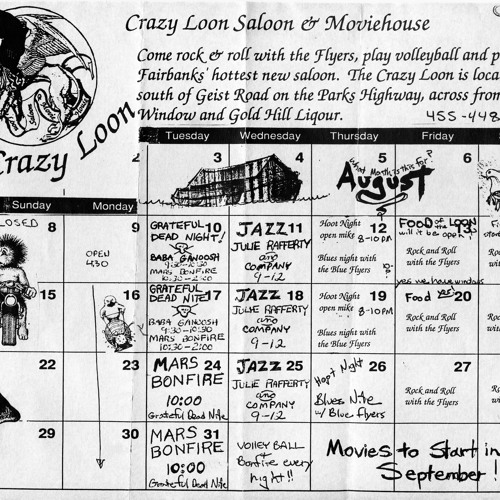 Crazy Loon Saloon & Moviehouse
Come rock & roll with the Flyers, play volleyball and p
Fairbanks' hottest new saloon. The Crazy Loon is loca
south of Geist Road on the Parks Highway, across from
Window and Gold Hill Liqour.
455-448
Crazy Loon
Tuesday Wednesday Thursday Friday
3 4 5 6
What Month is this for?
August
Sunday Monday
CLOSED 8
9
OPEN
430
GRATEFUL 10
DEAD NIGHT!
BABA GANOOSH
9:30-10:30
MARS BONFIRE
10:30-2:00
JAZZ 11
JULIE RAFFERTY
and
COMPANY
9-12
Hoot Night 12
open mike 8-10pm
Blues night with
the Blue Flyers
FOOD of the LOON 13
will it be open?
Rock and Roll
with the Flyers
15
16
GRATEFUL
DEAD NITE 17
BABA GANOOSH
9:30-10:30
MARS BONFIRE
10:30-2:00
JAZZ 18
JULIE RAFFERTY
and
COMPANY
9-12
Hoot Night 19
open mike 8-10PM
Blues night with
the Blue Flyers
yes we have windows
Food yes 20
Rock and Roll
with the Flyers
22
23
MARS 24
BONFIRE
10:00
Grateful Dead Nite
JAZZ 25
JULIE RAFFERTY
and
COMPANY
9-12
Night 26
Blues Nite
w/ Blue flyers
27
Rock and Roll
with the Flyers
29
30
MARS 31
BONFIRE
10:00
Grateful Dead Nite
VOLLEY BALL
&
Bonfire every
night!!
Movies to Start in
September!